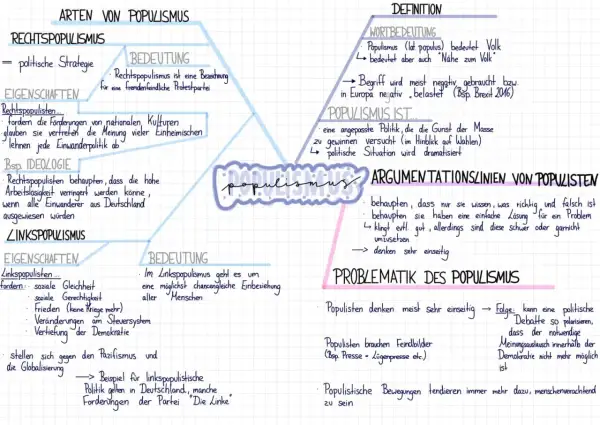 ARTEN VON POPULISMUS
RECHTSPOPULISMUS
= politische Strategie
BEDEUTUNG
· Rechtspopulismus ist eine Bezeichnung
für eine fremdenfeindliche Protestpartei
EIGENSCHAFTEN
Rechtspopulisten...
· fordern die Förderungen von nationalen Kulturen
· glauben sie vertreten die Meinung vieler Einheimischen
· lehnen jede Einwanderpolitik ab
Bsp. IDEOLOGIE
· Rechtspopulisten behaupten, dass die hohe
Arbeitslosigkeit verringert werden könne,
wenn alle Einwanderer aus Deutschland
ausgewiesen würden
LINKSPOPULISMUS
EIGENSCHAFTEN
Linkspopulisten...
fordern: · soziale Gleichheit
· soziale Gerechtigkeit
· Frieden (keine Kriege mehr)
· Veränderungen am Steuersystem
· Vertiefung der Demokratie
· stellen sich gegen den Pazifismus und
die Globalisierung
BEDEUTUNG
· Im Linkspopulismus geht es um
eine möglichst chancengleiche Einbeziehung
aller Menschen
→ Beispiel für linkspopulistische
Politik gelten in Deutschland, manche
Forderungen der Partei "Die Linke"
populismus
DEFINITION
WORTBEDEUTUNG
· Populismus (lat. populus) bedeutet Volk
↳ bedeutet aber auch "Nähe zum Volk"
→ Begriff wird meist negativ gebraucht bzw.
in Europa negativ „belastet" (Bsp. Brexit 2016)
POPULISMUS IST...
· eine angepasste Politik, die die Gunst der Masse
zu gewinnen versucht (im Hinblick auf Wahlen)
↳ politische Situation wird dramatisiert
ARGUMENTATIONSLINIEN VON POPULISTEN
· behaupten, dass nur sie wissen, was richtig und falsch ist
· behaupten sie haben eine einfache Lösung für ein Problem
↳ klingt evtl. gut, allerdings sind diese schwer oder garnicht
umzusetzen
→ denken sehr einseitig
PROBLEMATIK DES POPULISMUS
· Populisten denken meist sehr einseitig → Folge: kann eine politische
Debatte so polarisieren,
dass der notwendige
Meinungsaustausch innerhalb der
Demokratie nicht mehr möglich
ist
· Populisten brauchen Feindbilder
(Bsp. Presse - Lügenpresse etc.)
· Populistische Bewegungen tendieren immer mehr dazu, menschenverachtend
zu sein